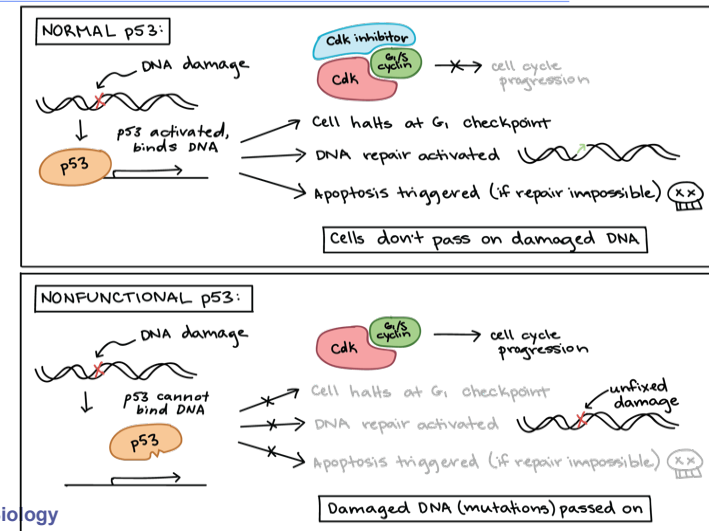 NORMAL p53:
DNA damage
p53 activated,
binds DNA
p53
Cdk inhibitor
G1/S
cyclin
Cdk
cell cycle
progression
Cell halts at G1 checkpoint
DNA repair activated
Apoptosis triggered (if repair impossible)
Cells don't pass on damaged DNA
NONFUNCTIONAL p53:
DNA damage
p53 cannot
bind DNA
p53
G1/S
cyclin
Cdk
cell cycle
progression
Cell halts at G1 checkpoint
DNA repair activated
unfixed
damage
Apoptosis triggered (if repair impossible)
Damaged DNA (mutations) passed on
iology